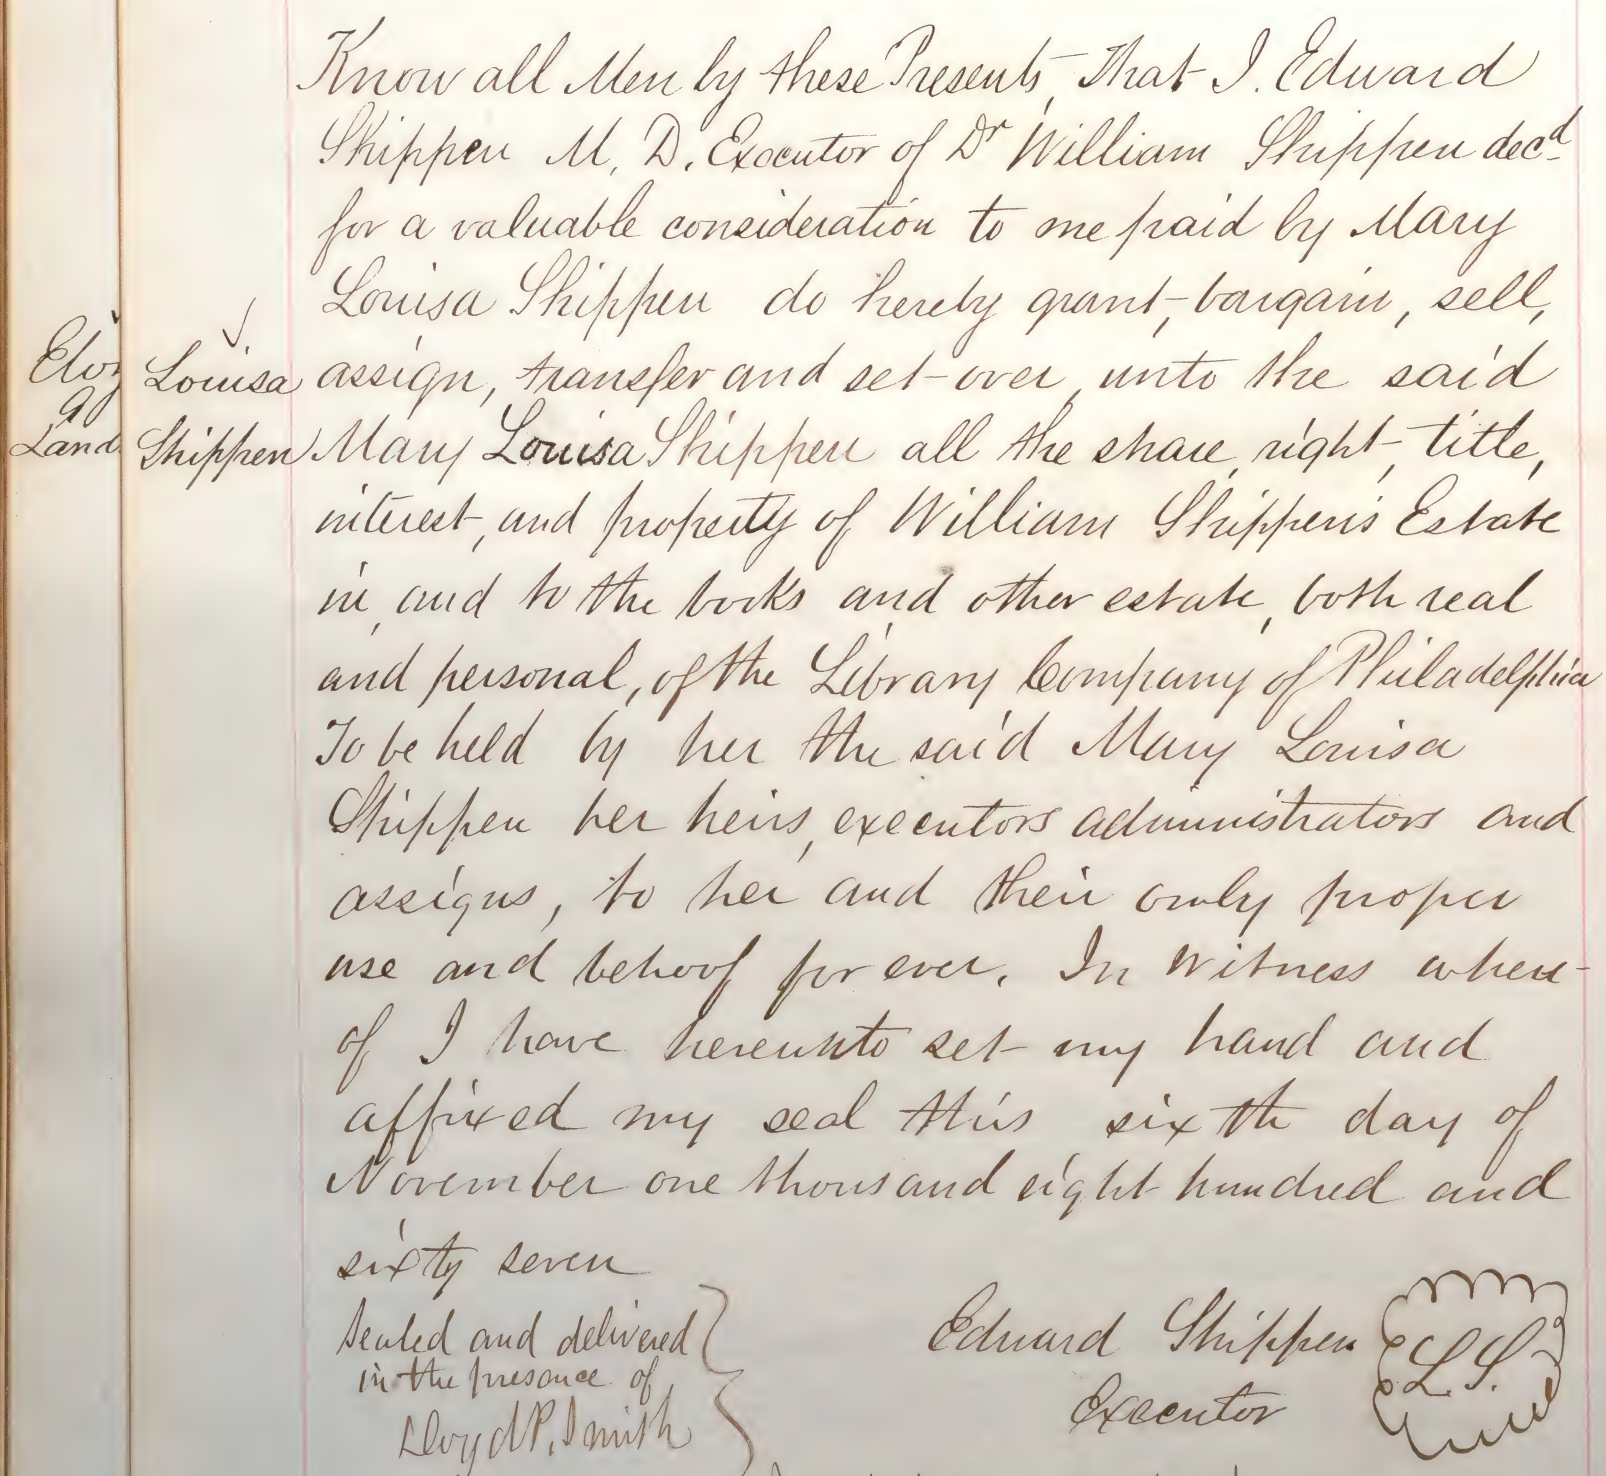 Know all Men by these Presents, That I. Edward
Shippen M. D. Executor of Dr William Shippen decd
for a valuable consideration to me paid by Mary
Louisa Shippen do hereby grant, bargain, sell,
Louisa assign, transfer and set over, unto the said
Land Shippen Mary Louisa Shippen all the share, right, title,
interest, and property of William Shippen's Estate
in, and to the books and other estate, both real
and personal, of the Library Company of Philadelphia
To be held by her the said Mary Louisa
Shippen her heirs, executors administrators and
assigns, to her and their only proper
use and behoof for ever. In Witness where-
of I have hereunto set my hand and
affixed my seal this sixth day of
November one thousand eight hundred and
sixty seven
Sealed and delivered
in the presence of
Lloyd P. Smith
Edward Shippen L. S.
Executor